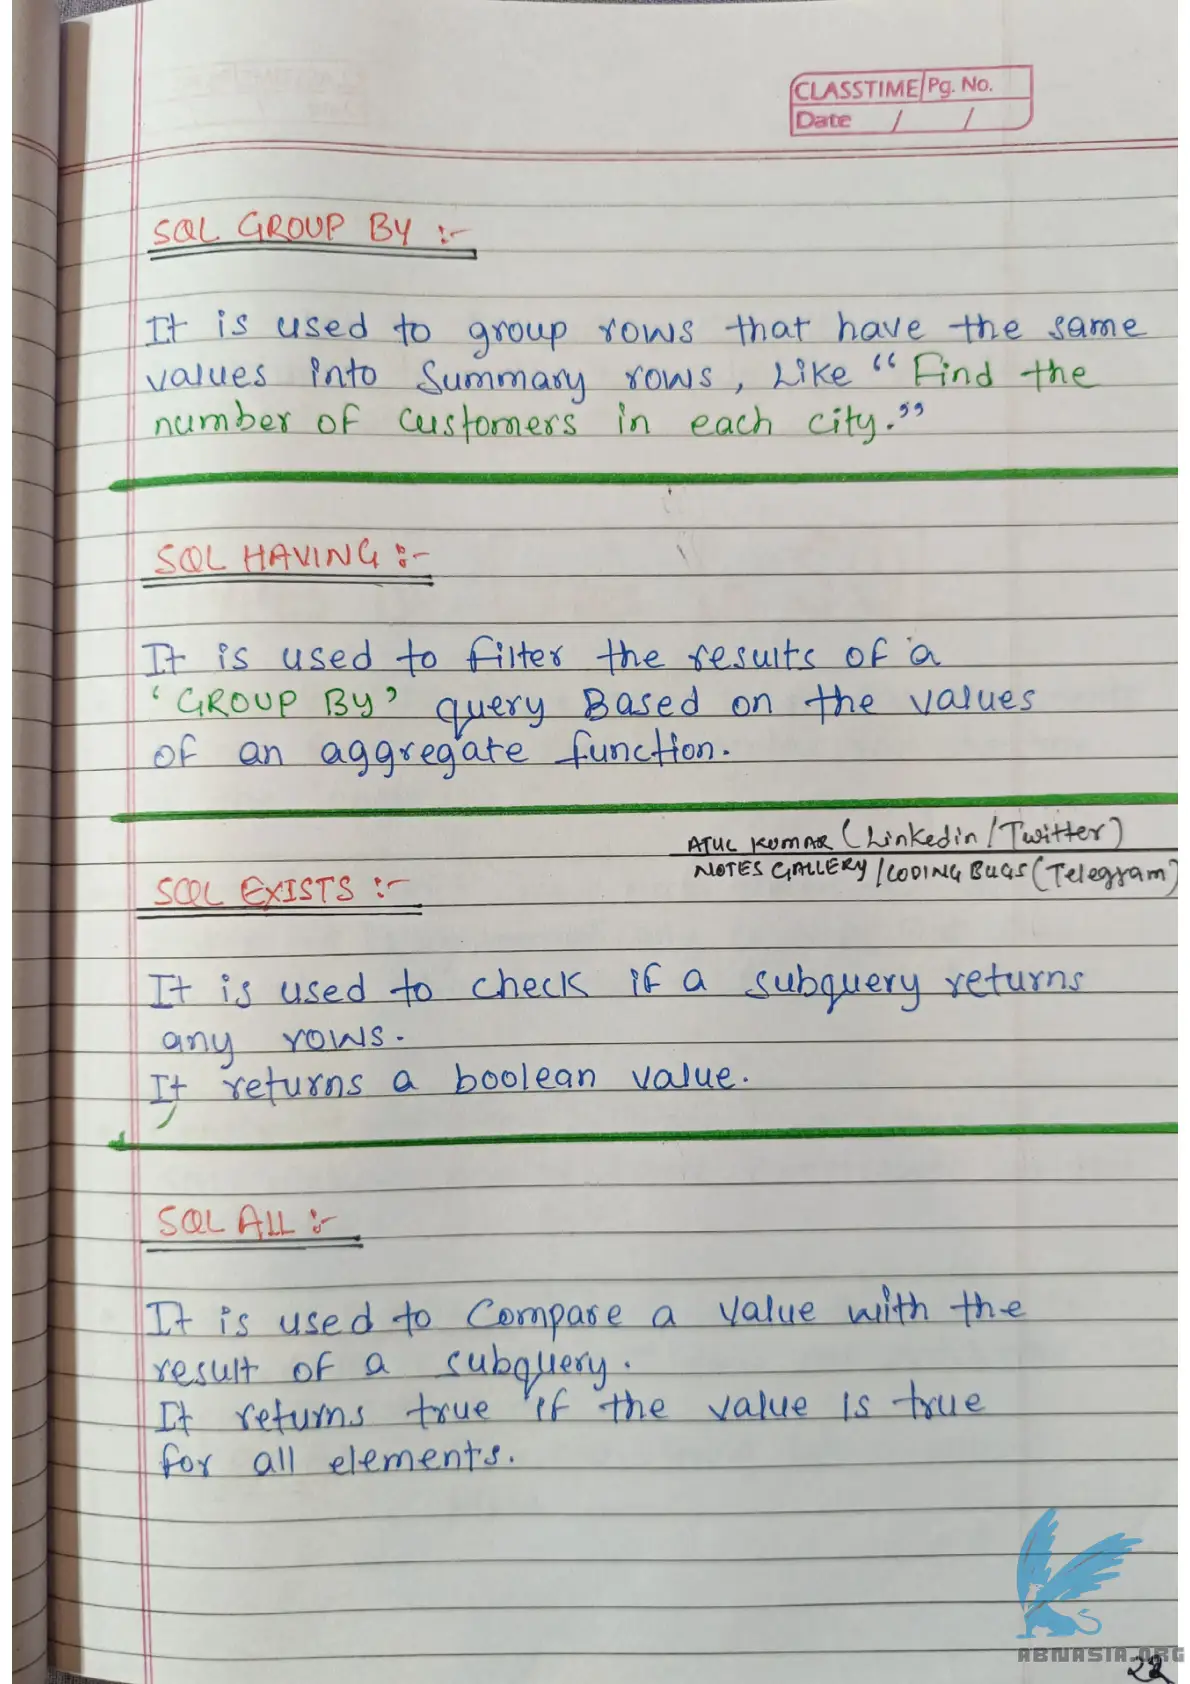 CLASSTIME Pg. No.
Date / /
SQL GROUP BY :-
It is used to group rows that have the same
values into Summary rows, Like “Find the
number of customers in each city.”
SQL HAVING :-
It is used to filter the results of a
‘GROUP BY’ query Based on the values
of an aggregate function.
ATUL KUMAR (Linkedin/Twitter)
NOTES GALLERY/CODING BUGS (Telegram)
SQL EXISTS :-
It is used to check if a subquery returns
any rows.
It returns a boolean value.
SQL ALL :-
It is used to Compare a value with the
result of a subquery.
It returns true if the value is true
for all elements.
ABNASIA.ORG